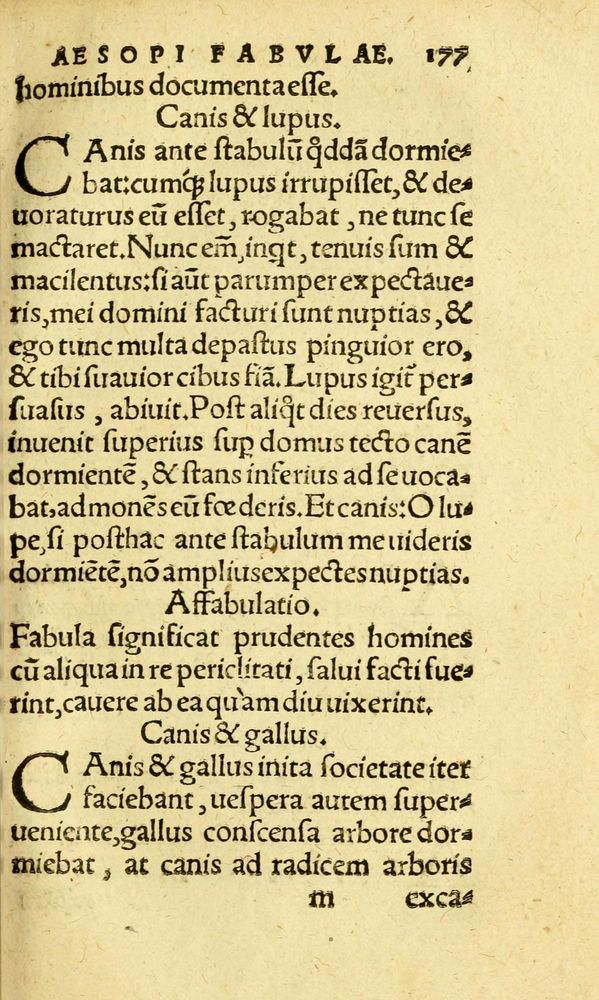 AESOPI FABVLAE. 177
hominibus documenta esſe.
Canis & lupus.
CAnis ante ſtabulū q̄ddā dormie-
bat: cumq̨ lupus irrupiſſet, & de-
uoraturus eū eſſet, rogabat, ne tunc ſe
mactaret. Nunc em̄, inqt, tenuis ſum &
macilentus: ſi aūt parumper expectaue-
ris, mei domini facturi ſunt nuptias, &
ego tunc multa depaſtus pinguior ero,
& tibi ſuauior cibus fiā. Lupus igit̄ per-
ſuaſus, abiuit. Poſt aliqt dies reuerſus,
inuenit ſuperius ſuꝑ domus tecto canē
dormientē, & ſtans inferius ad ſe uoca-
bat, admonēs eū fœderis. Et canis: O lu-
pe, ſi poſthac ante ſtabulum me uideris
dormiētē, nō amplius expectes nuptias.
Affabulatio.
Fabula ſignificat prudentes homines
cū aliqua in re periclitati, ſalui facti fue-
rint, cauere ab ea quàm diu uixerint.
Canis & gallus.
CAnis & gallus inita ſocietate iter
faciebant, ueſpera autem ſuper-
ueniente, gallus conſcenſa arbore dor-
miebat, at canis ad radicem arboris
m exca-